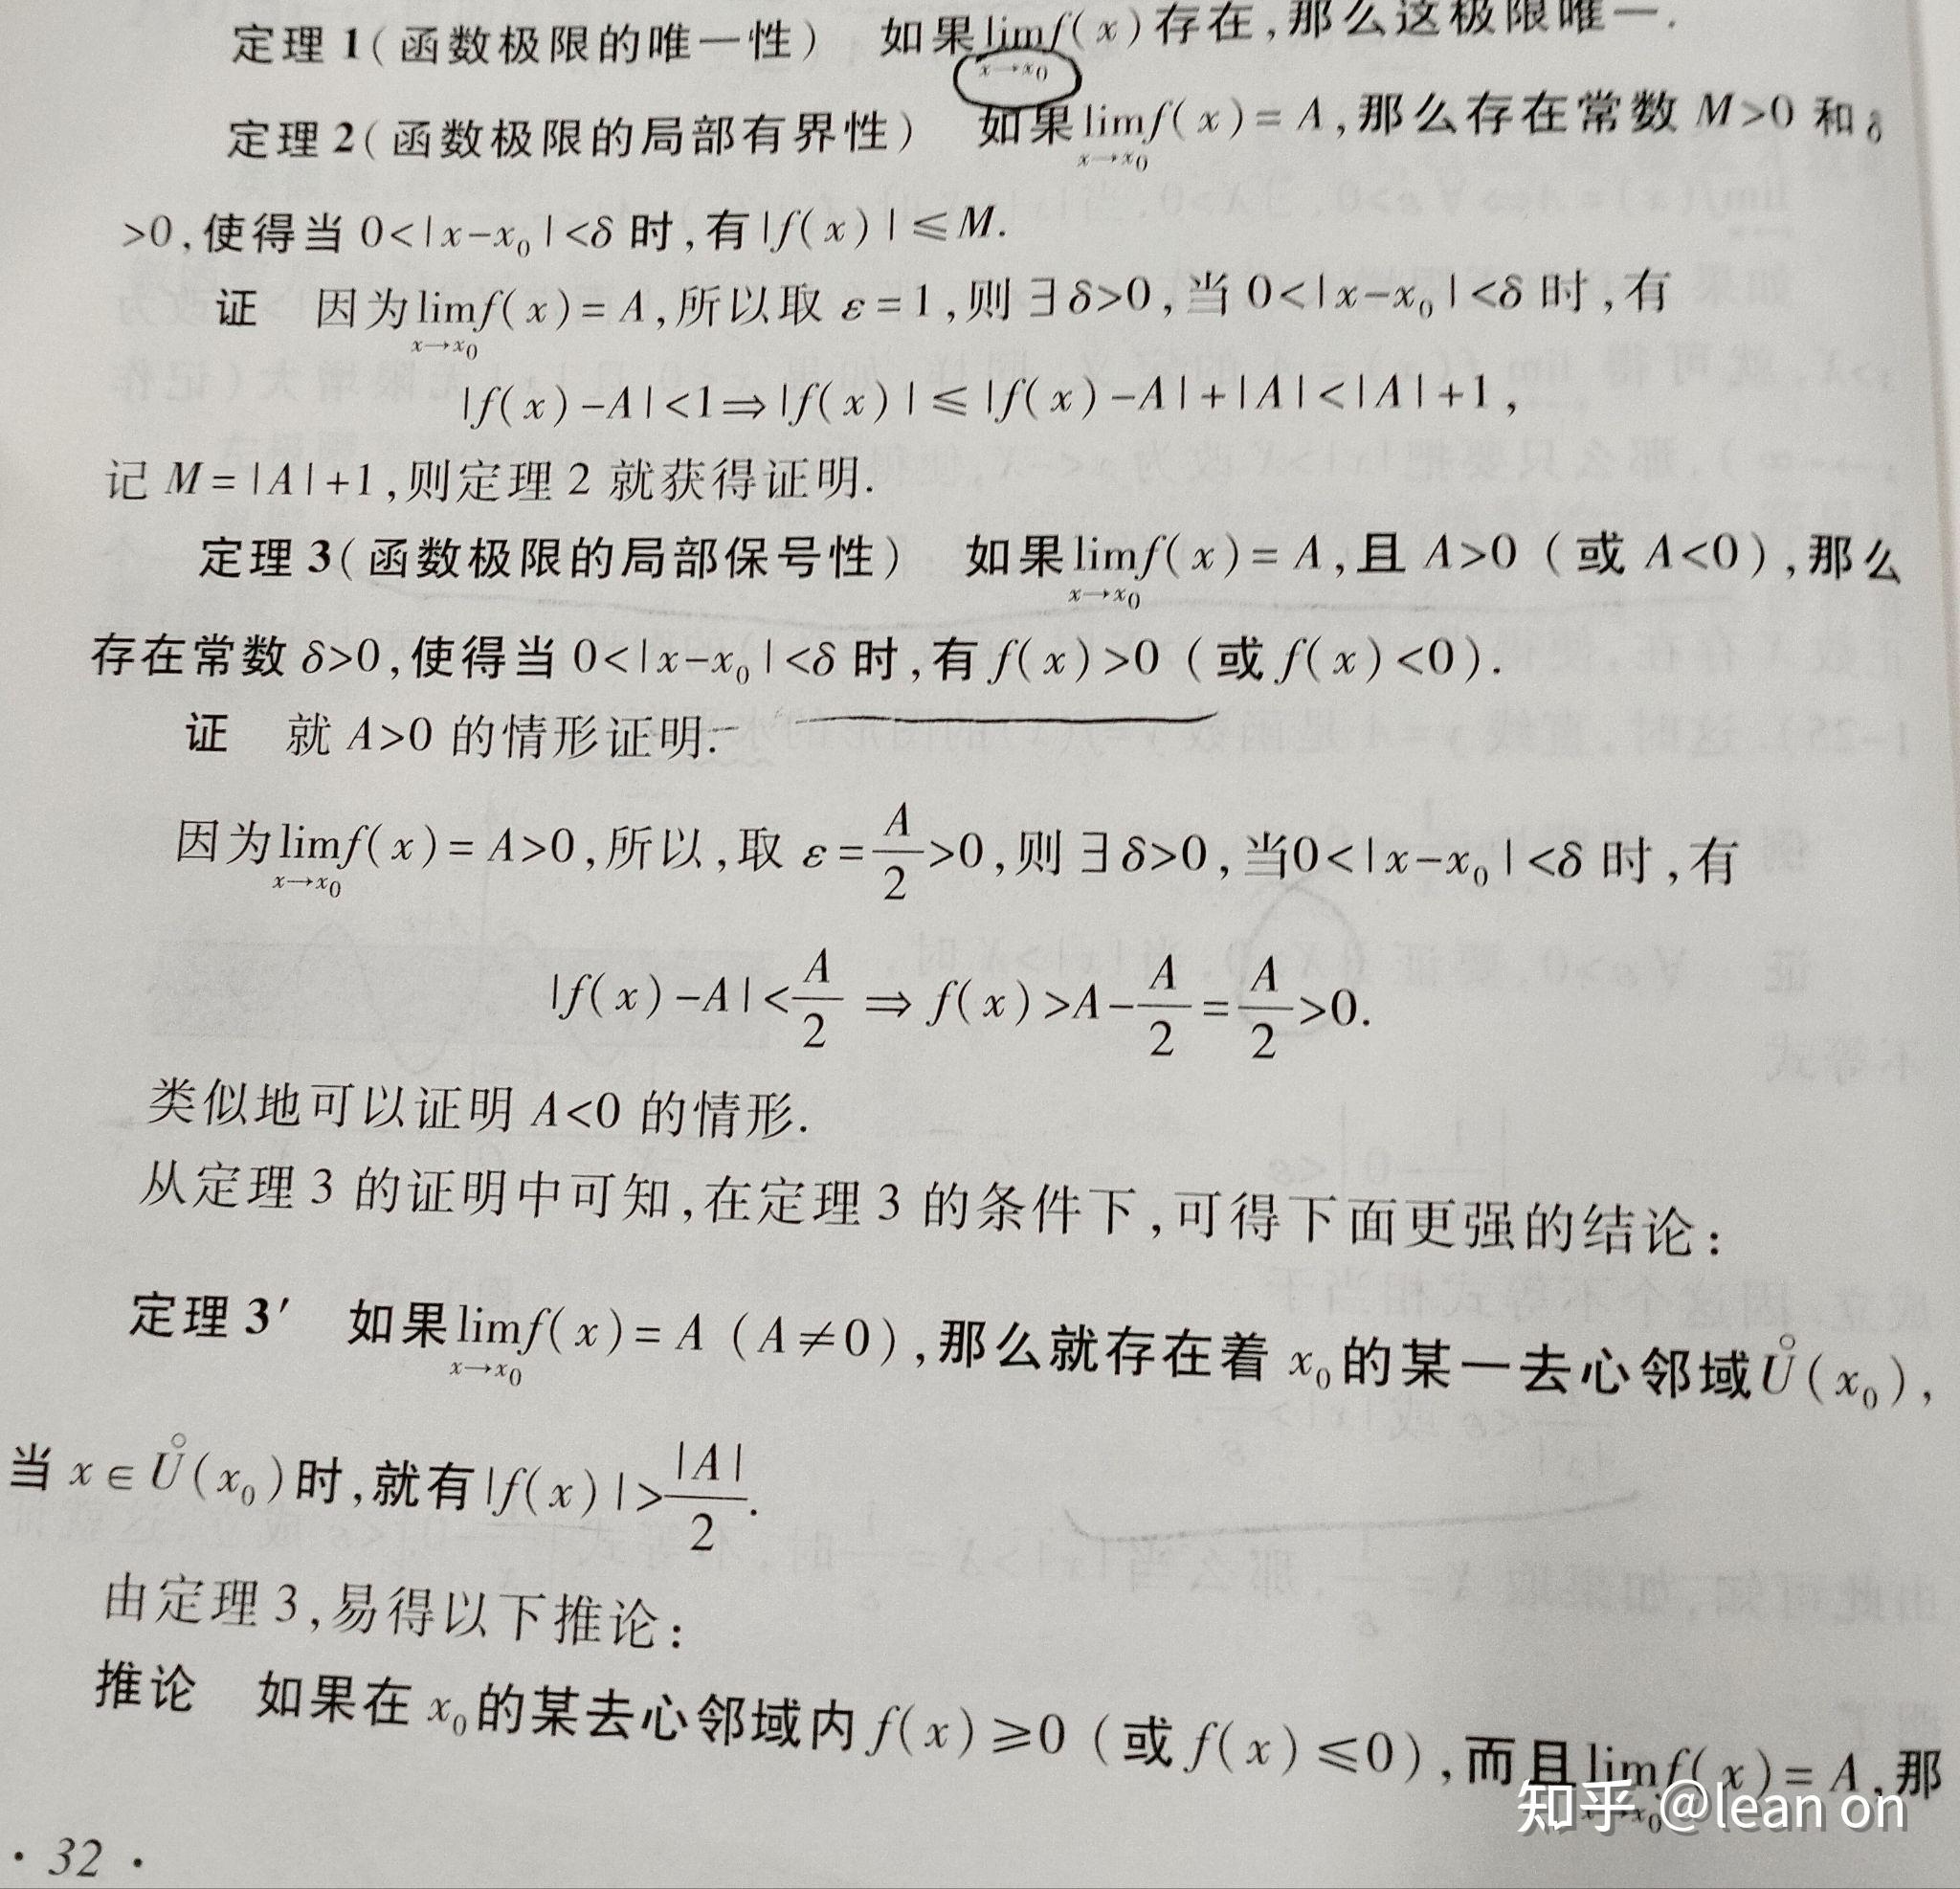 定理1(函数极限的唯一性) 如果lim f(x)存在,那么这极限唯一.
x→x₀
定理2(函数极限的局部有界性) 如果lim f(x)=A,那么存在常数 M>0 和 δ
x→x₀
>0,使得当 0<|x-x₀|<δ 时,有|f(x)|≤M.
证 因为lim f(x)=A,所以取 ε=1,则∃δ>0,当 0<|x-x₀|<δ 时,有
x→x₀
|f(x)-A|<1⇒|f(x)|≤|f(x)-A|+|A|<|A|+1,
记 M=|A|+1,则定理 2 就获得证明.
定理3(函数极限的局部保号性) 如果lim f(x)=A,且 A>0 (或 A<0),那么
x→x₀
存在常数 δ>0,使得当 0<|x-x₀|<δ 时,有 f(x)>0 (或 f(x)<0).
证 就 A>0 的情形证明.
因为lim f(x)=A>0,所以,取 ε=A/2>0,则∃δ>0,当0<|x-x₀|<δ 时,有
x→x₀
|f(x)-A|<A/2 ⇒ f(x)>A-A/2=A/2>0.
类似地可以证明 A<0 的情形.
从定理 3 的证明中可知,在定理 3 的条件下,可得下面更强的结论:
定理3′ 如果lim f(x)=A (A≠0),那么就存在着 x₀的某一去心邻域Ů(x₀),
x→x₀
当 x∈Ů(x₀)时,就有|f(x)|>|A|/2.
由定理 3,易得以下推论:
推论 如果在 x₀的某去心邻域内 f(x)≥0 (或 f(x)≤0),而且lim f(x)=A,那
x→x₀
知乎 @lean on
· 32 ·